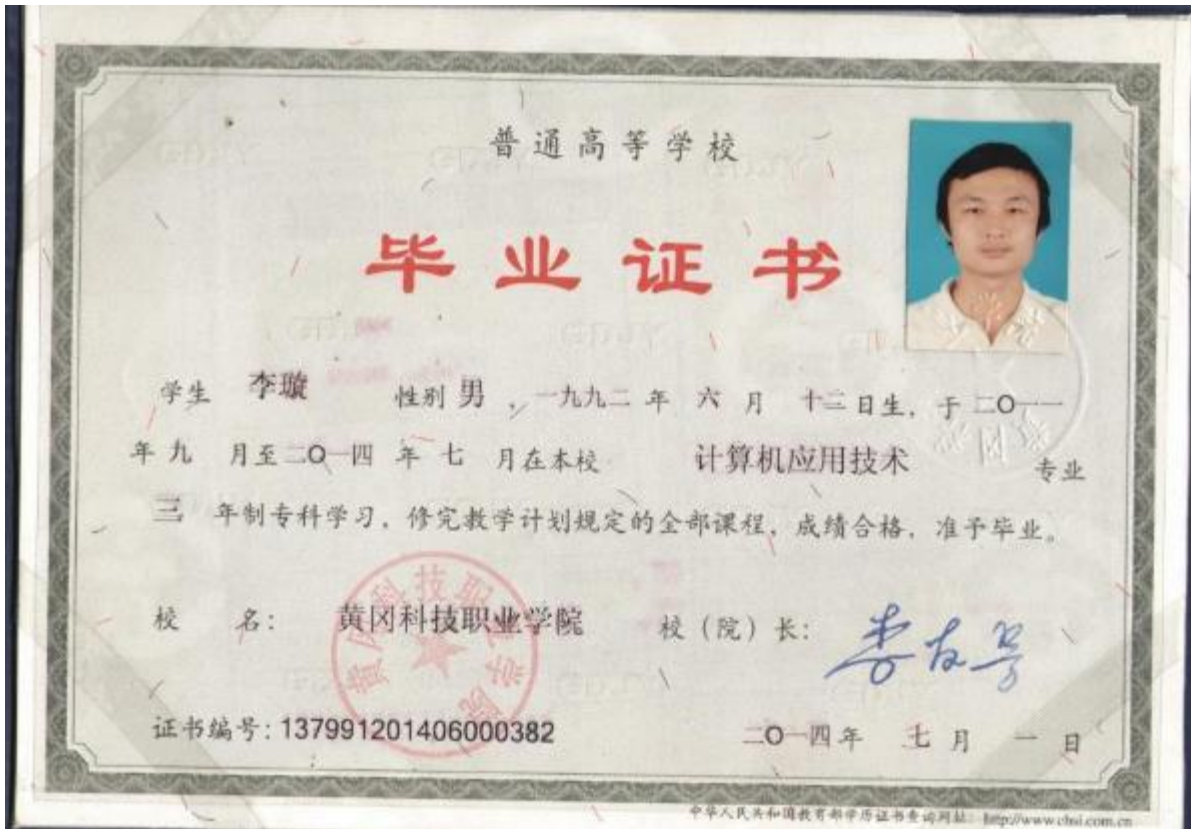 普通高等学校
毕业证书
学生 李璇 性别 男 ，一九九二 年 六 月 十二 日生，于 二〇一一
年 九 月至 二〇一四 年 七 月在本校 计算机应用技术 专业
三 年制专科学习，修完教学计划规定的全部课程，成绩合格，准予毕业。
校 名： 黄冈科技职业学院 校（院）长：
黄冈科技职业学院
证书编号：137991201406000382 二〇一四 年 七 月 一 日
中华人民共和国教育部学历证书查询网址：http://www.chsi.com.cn